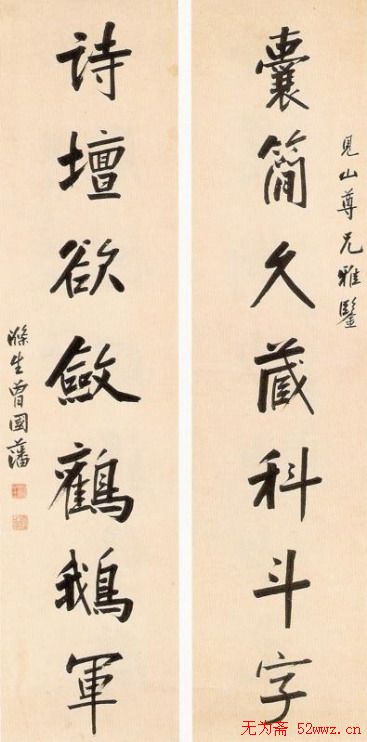 見山尊兄雅鑒
囊簡久藏科斗字
詩壇欲斂鸛鵝軍
滌生曾國藩
无为斋 52wwz.cn